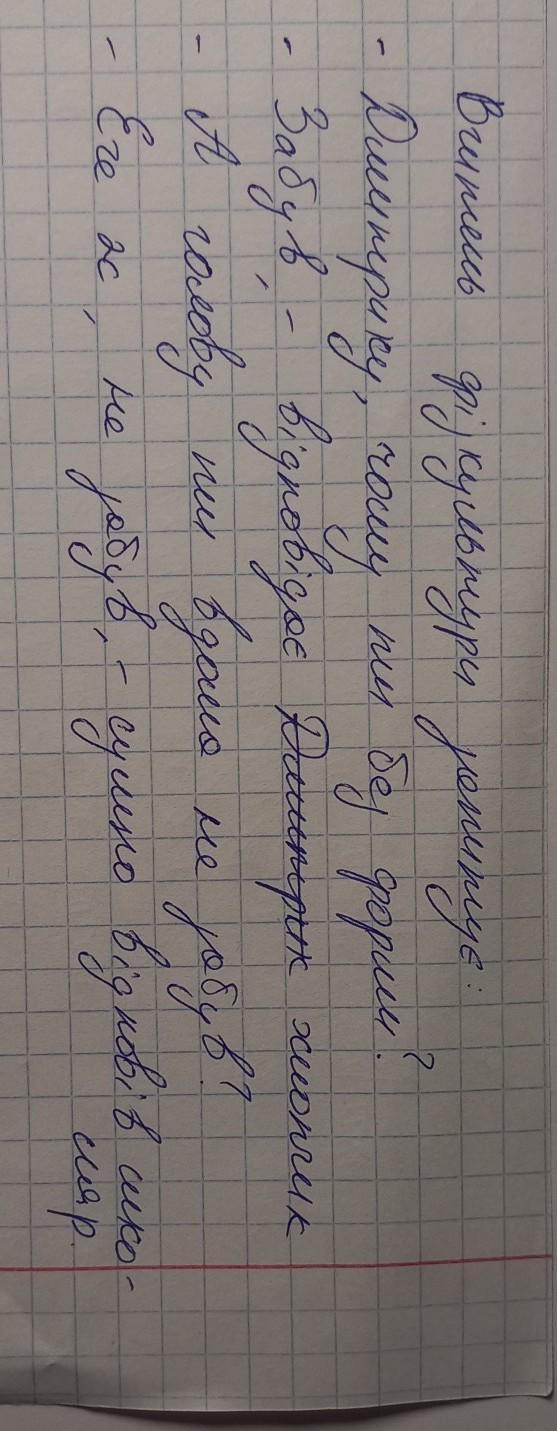 Вчитель фізкультури запитує:
- Дмитрику, чому ти без форми?
- Забув, - відповідає Дмитрик хлопчик
- А голову ти вдома не забув?
- Еге ж, не забув, - сумно відповів шко-
ляр.